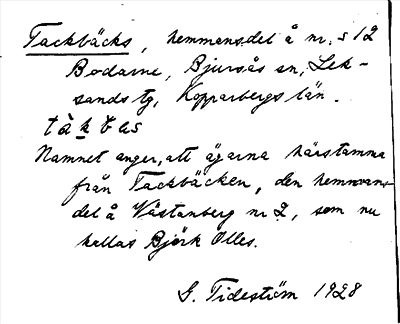 Tackbäcks, hemmansdel å nr. s 12
Bodarne, Bjursås sn, Lek-
sands tg, Kopparbergs län.
Namnet anger, att ägarna härstamma
från Tackbäcken, den hemmans-
del å Västanberg nr 2, som nu
kallas Björk Olles.
G. Tideström 1928